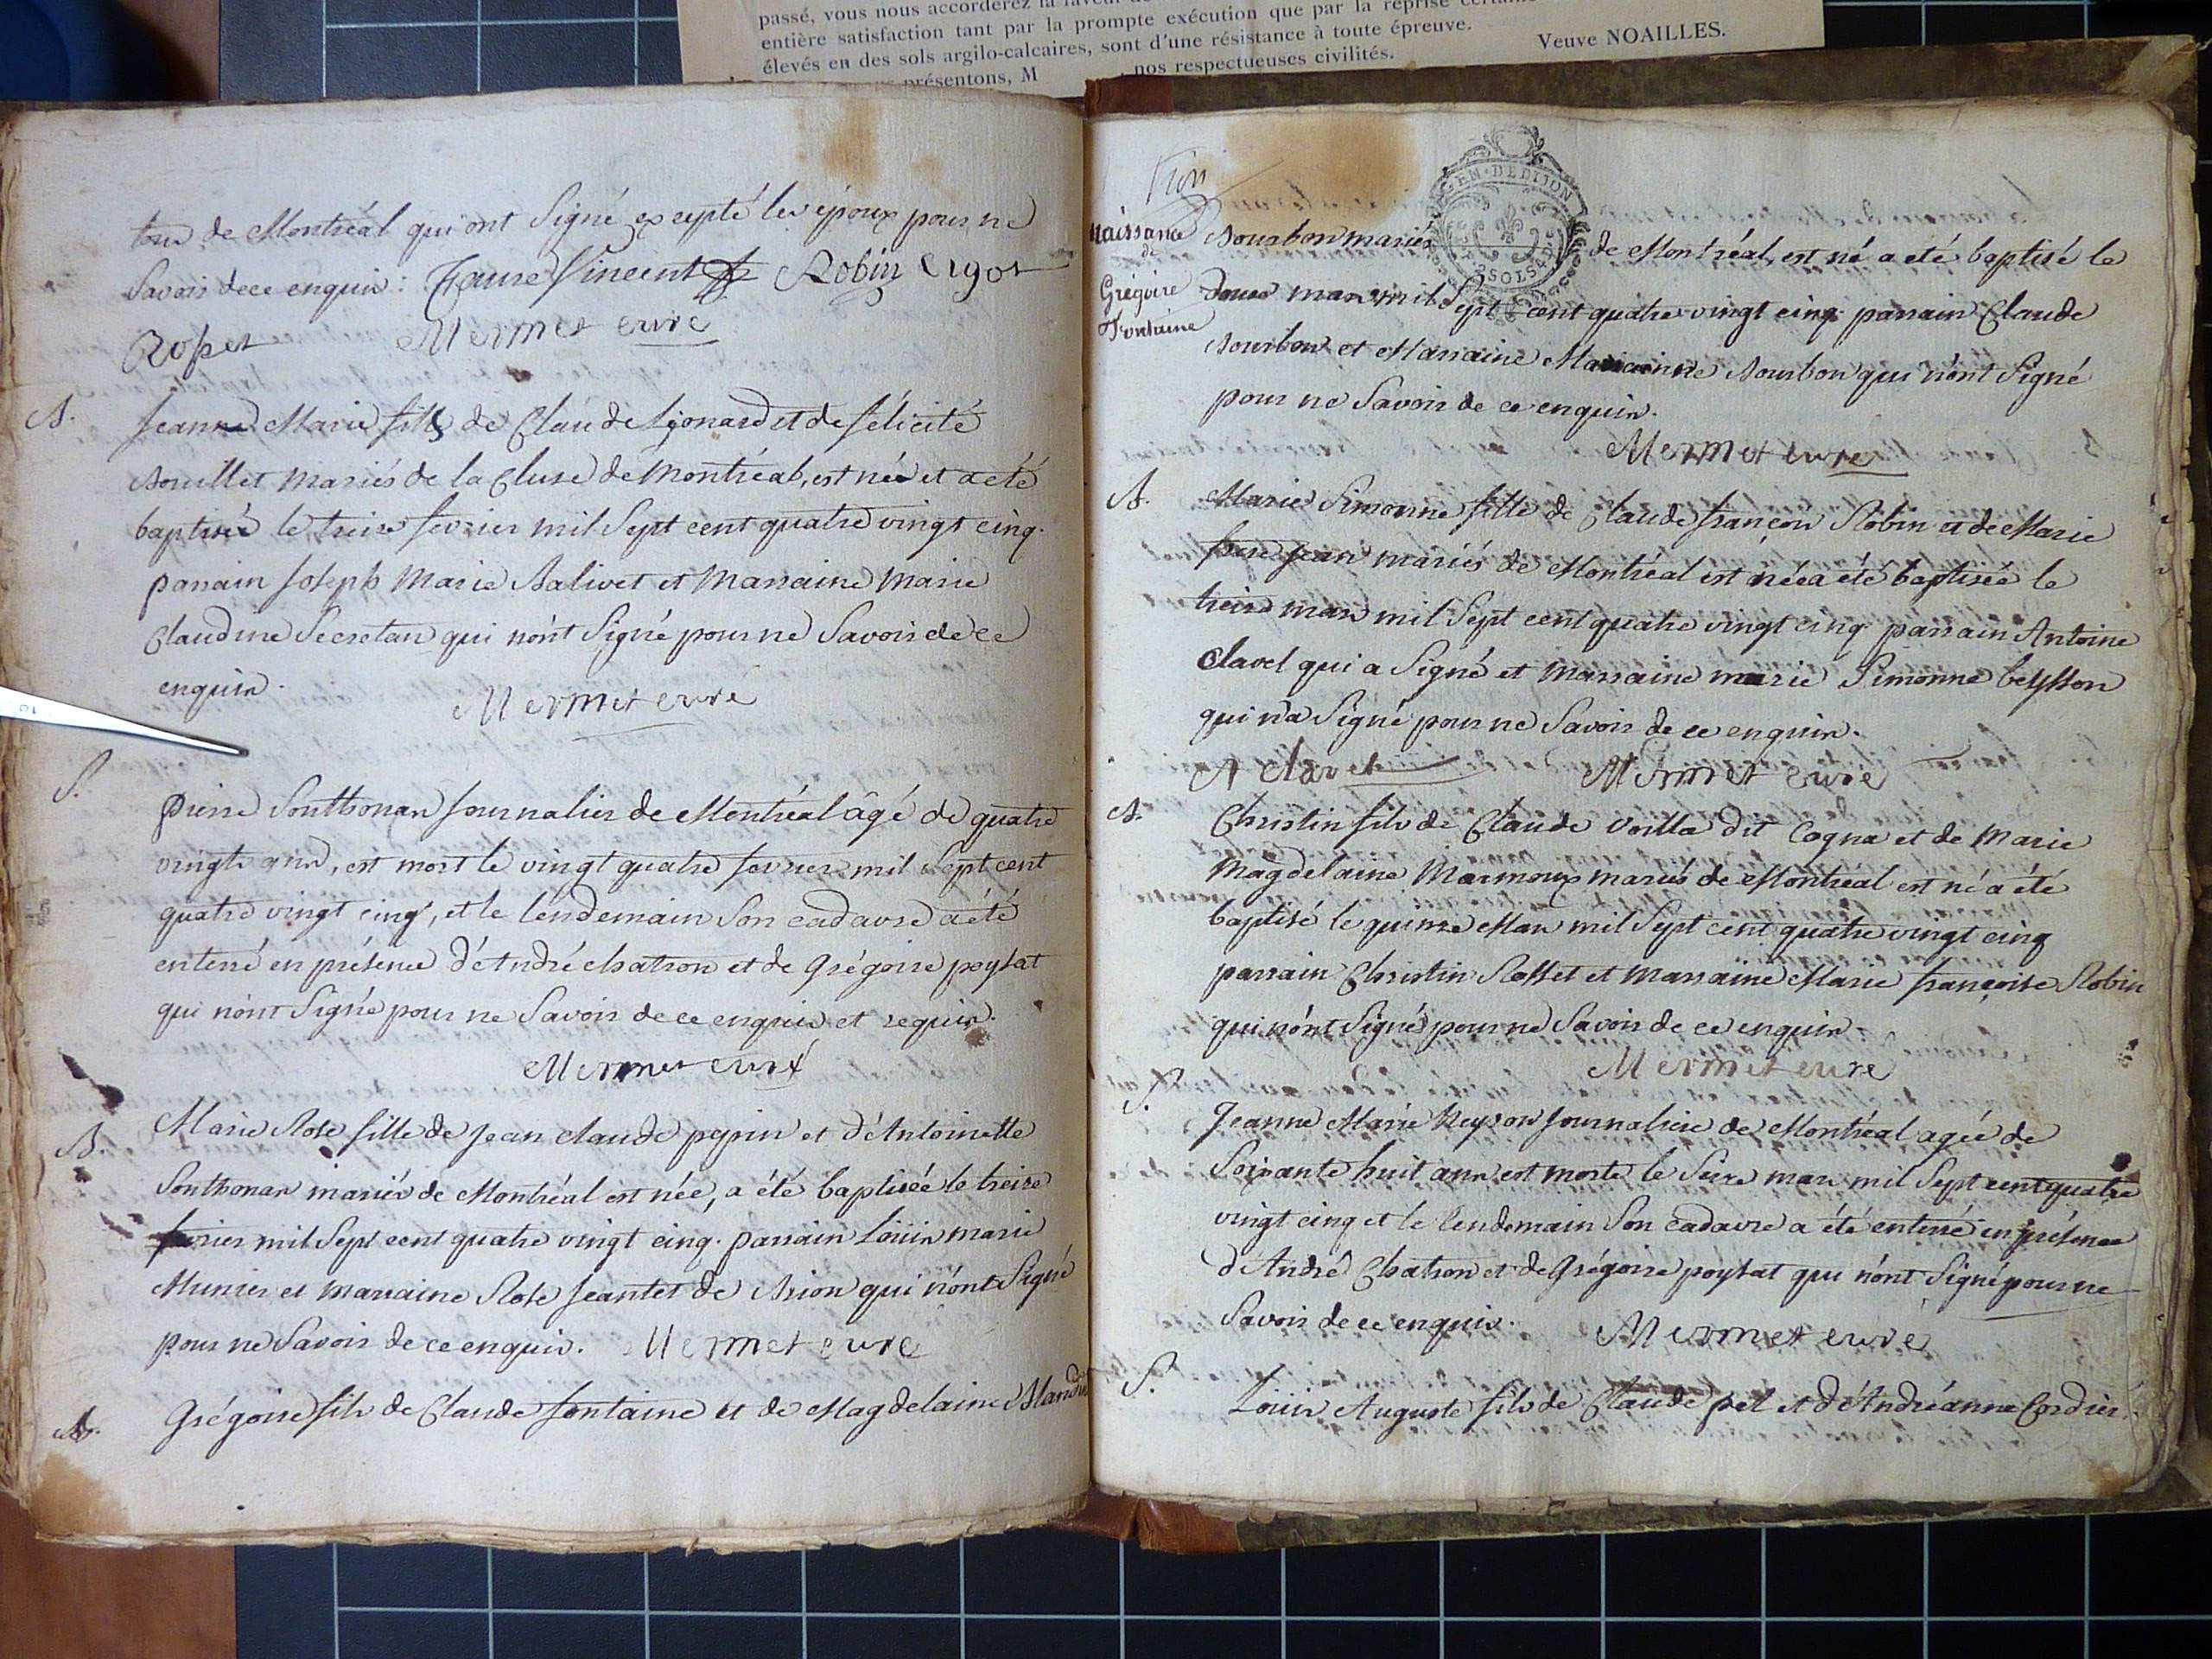 passé, vous nous accorderez la faveur
entière satisfaction tant par la prompte exécution que par la reprise
élevés en des sols argilo-calcaires, sont d'une résistance à toute épreuve.
présentons, M , nos respectueuses civilités.
Veuve NOAILLES.
tous de Montréal qui ont Signé excepté les époux pour ne
Savoir de ce enquis : Faure Vincent Robin Ugos
Rosset Mermet curé
B.
Jeanne Marie fille de Claude Lyonard et de félicité
Bouillet Mariés de la Cluse de Montréal, est née et a été
baptisée le treize fevrier mil Sept cent quatre vingt cinq.
parrain Joseph Marie Balivet et Marraine Marie
Claudine Secretan qui n'ont Signé pour ne Savoir de ce
enquis.
Mermet curé
S.
pierre Southonax Journalier de Montréal âgé de quatre
vingts ans, est mort le vingt quatre fevrier mil Sept cent
quatre vingt cinq, et le lendemain Son cadavre a été
enterré en présence d'André Chatron et de Grégoire poysat
qui n'ont Signé pour ne Savoir de ce enquis et requis.
Mermet curé
B.
Marie Rose fille de Jean Claude pepin et d'Antoinette
Southonax mariés de Montréal est née, a été baptisée le treize
fevrier mil Sept cent quatre vingt cinq. parrain Loüis marie
Munier et marraine Rose Jeantet de Brion qui n'ont Signé
pour ne Savoir de ce enquis. Mermet curé
B.
Grégoire fils de Claude fontaine et de Magdelaine Bland
GEN. DE DIJON
2 SOLS
naissance
de
Grégoire
Fontaine
Bourbon mariés de Montréal, est né a été baptisé le
douze mars mil Sept cent quatre vingt cinq. parrain Claude
Bourbon et Marraine Marianne Bourbon qui n'ont Signé
pour ne Savoir de ce enquis.
Mermet curé
B.
Marie Simonne fille de Claude françois Robin et de Marie
Jean mariés de Montréal est née a été baptisée le
treize mars mil Sept cent quatre vingt cinq. parrain Antoine
Clavel qui a Signé et Marraine marie Simonne beysson
qui n'a Signé pour ne Savoir de ce enquis.
A Clavel Mermet curé
B.
Christin fils de Claude Voilla dit Cogna et de Marie
Magdelaine Marmoux mariés de Montréal est né a été
baptisé le quinze Mars mil Sept cent quatre vingt cinq
parrain Christin Rosset et Marraine Marie françoise Robin
qui n'ont Signés pour ne Savoir de ce enquis.
Mermet curé
S.
Jeanne Marie Neyron Journaliere de Montréal agée de
Soixante huit ans est morte le Seize mars mil Sept cent quatre
vingt cinq et le lendemain Son cadavre a été enterré en présence
d'André Chatron et de Grégoire poysat qui n'ont Signé pour ne
Savoir de ce enquis. Mermet curé
S.
Loüis Auguste fils de Claude pel et d'Andréanne Cordier